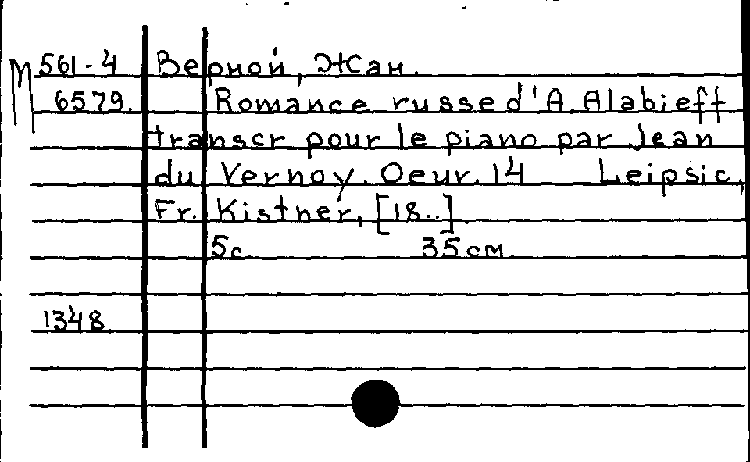 М 561-4 Верной, Жан.
6579. Romance russe d'A. Alabieff
transcr pour le piano par Jean
du Vernoy. Oeuv. 14 Leipsic,
Fr. Kistner, [18..]
5 с. 35 см.
1348